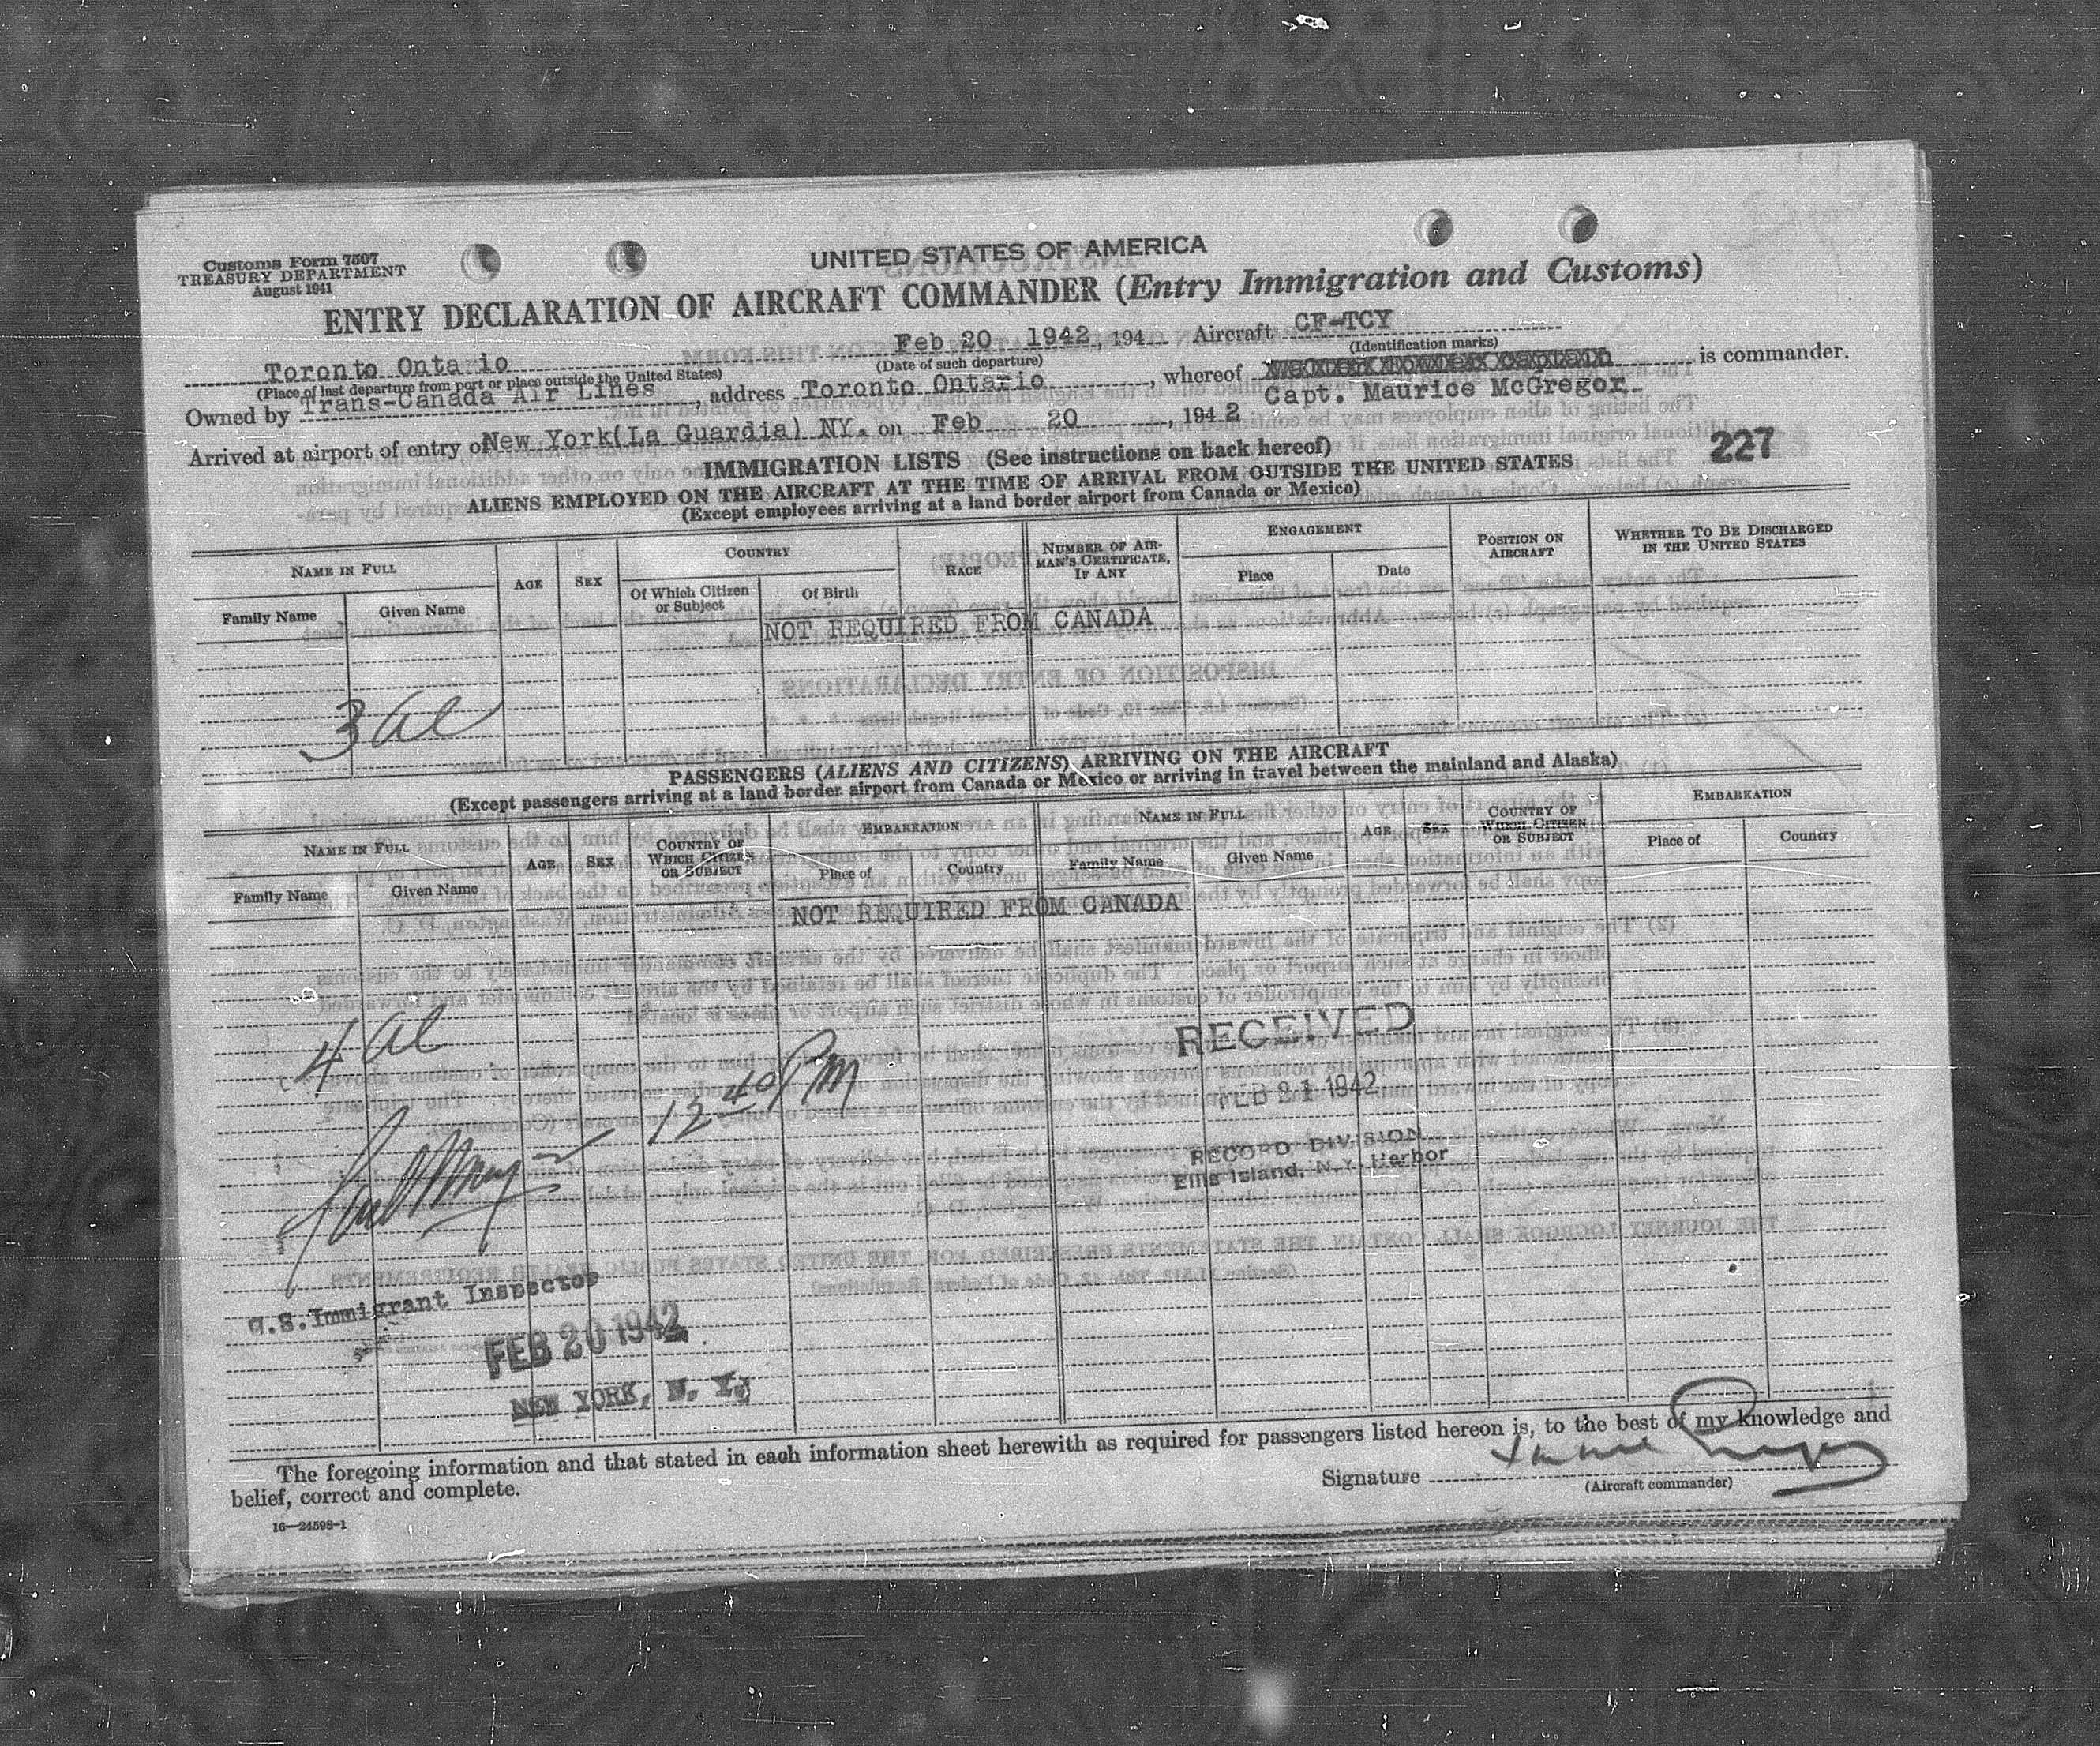 Customs Form 7507
TREASURY DEPARTMENT
August 1941
UNITED STATES OF AMERICA
ENTRY DECLARATION OF AIRCRAFT COMMANDER (Entry Immigration and Customs)
Toronto Ontario Feb 20 1942, 194 Aircraft CF-TCY
(Place of last departure from port or place outside the United States) (Date of such departure) (Identification marks)
Owned by Trans-Canada Air Lines, address Toronto Ontario, whereof Capt. Maurice McGregor is commander.
Arrived at airport of entry of New York(La Guardia) NY. on Feb 20, 1942
227
IMMIGRATION LISTS (See instructions on back hereof)
ALIENS EMPLOYED ON THE AIRCRAFT AT THE TIME OF ARRIVAL FROM OUTSIDE THE UNITED STATES
(Except employees arriving at a land border airport from Canada or Mexico)
NAME IN FULL AGE SEX COUNTRY RACE NUMBER OF AIRMAN'S CERTIFICATE, IF ANY ENGAGEMENT POSITION ON AIRCRAFT WHETHER TO BE DISCHARGED IN THE UNITED STATES
Family Name Given Name Of Which Citizen or Subject Of Birth Place Date
NOT REQUIRED FROM CANADA
3 al
PASSENGERS (ALIENS AND CITIZENS) ARRIVING ON THE AIRCRAFT
(Except passengers arriving at a land border airport from Canada or Mexico or arriving in travel between the mainland and Alaska)
NAME IN FULL AGE SEX COUNTRY OF WHICH CITIZEN OR SUBJECT EMBARKATION NAME IN FULL AGE SEX COUNTRY OF WHICH CITIZEN OR SUBJECT EMBARKATION
Family Name Given Name Place of Country Family Name Given Name Place of Country
NOT REQUIRED FROM CANADA
4 al
12 40 PM
RECEIVED
FEB 21 1942
RECORD DIVISION
Ellis Island, N.Y. Harbor
U.S. Immigrant Inspector
FEB 20 1942
NEW YORK, N. Y.
The foregoing information and that stated in each information sheet herewith as required for passengers listed hereon is, to the best of my knowledge and
belief, correct and complete.
Signature
(Aircraft commander)
16—24598-1